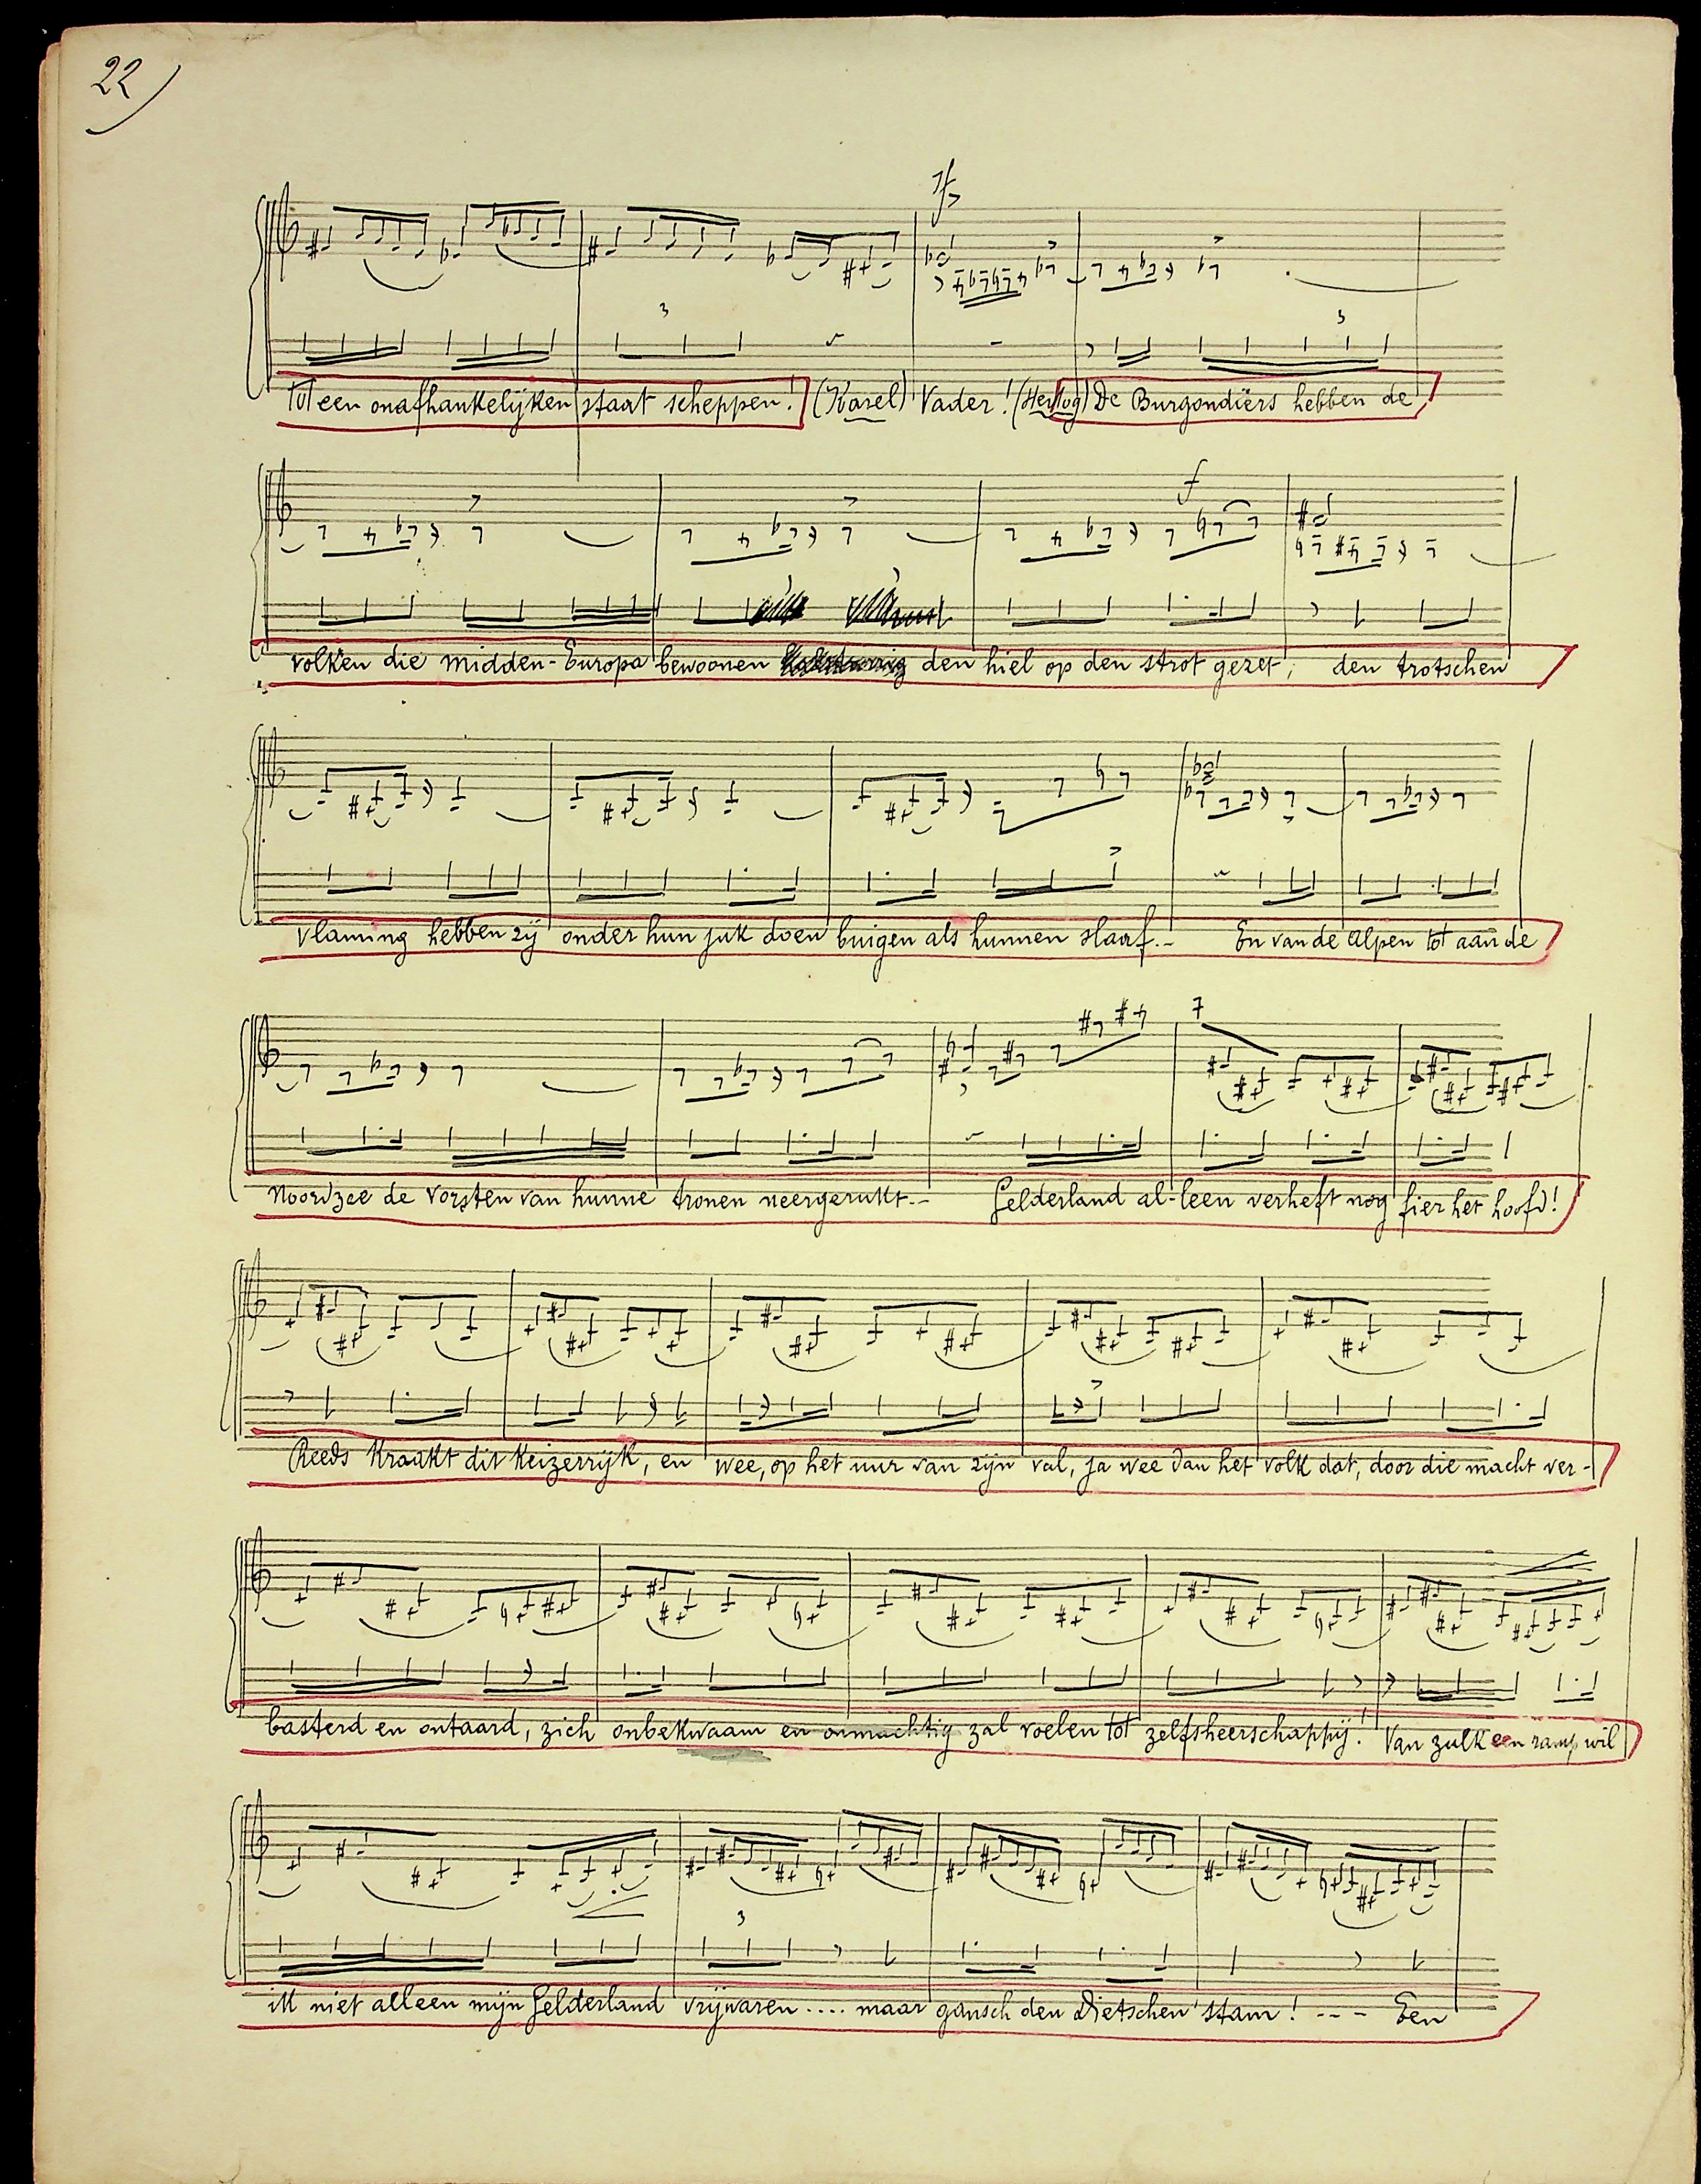 22)
sf>
3
3
Tot een onafhankelijken staat scheppen! (Karel) Vader! (Hertog) De Burgondiërs hebben de
f
volken die midden-Europa bewoonen den hiel op den strot gezet; den trotschen
vlaming hebben zij onder hun juk doen buigen als hunnen slaaf.-
En van de Alpen tot aan de
Noordzee de vorsten van hunne tronen neergerukt.- Gelderland al-leen verheft nog fier het hoofd!
Reeds kraakt dit keizerrijk, en wee, op het uur van zijn val, ja wee dan het volk dat, door die macht ver-
basterd en ontaard, zich onbekwaam en onmachtig zal voelen tot zelfsheerschappij! Van zulk een ramp wil
3
ik niet alleen mijn Gelderland vrijwaren .... maar gansch den Dietschen stam! --- Een